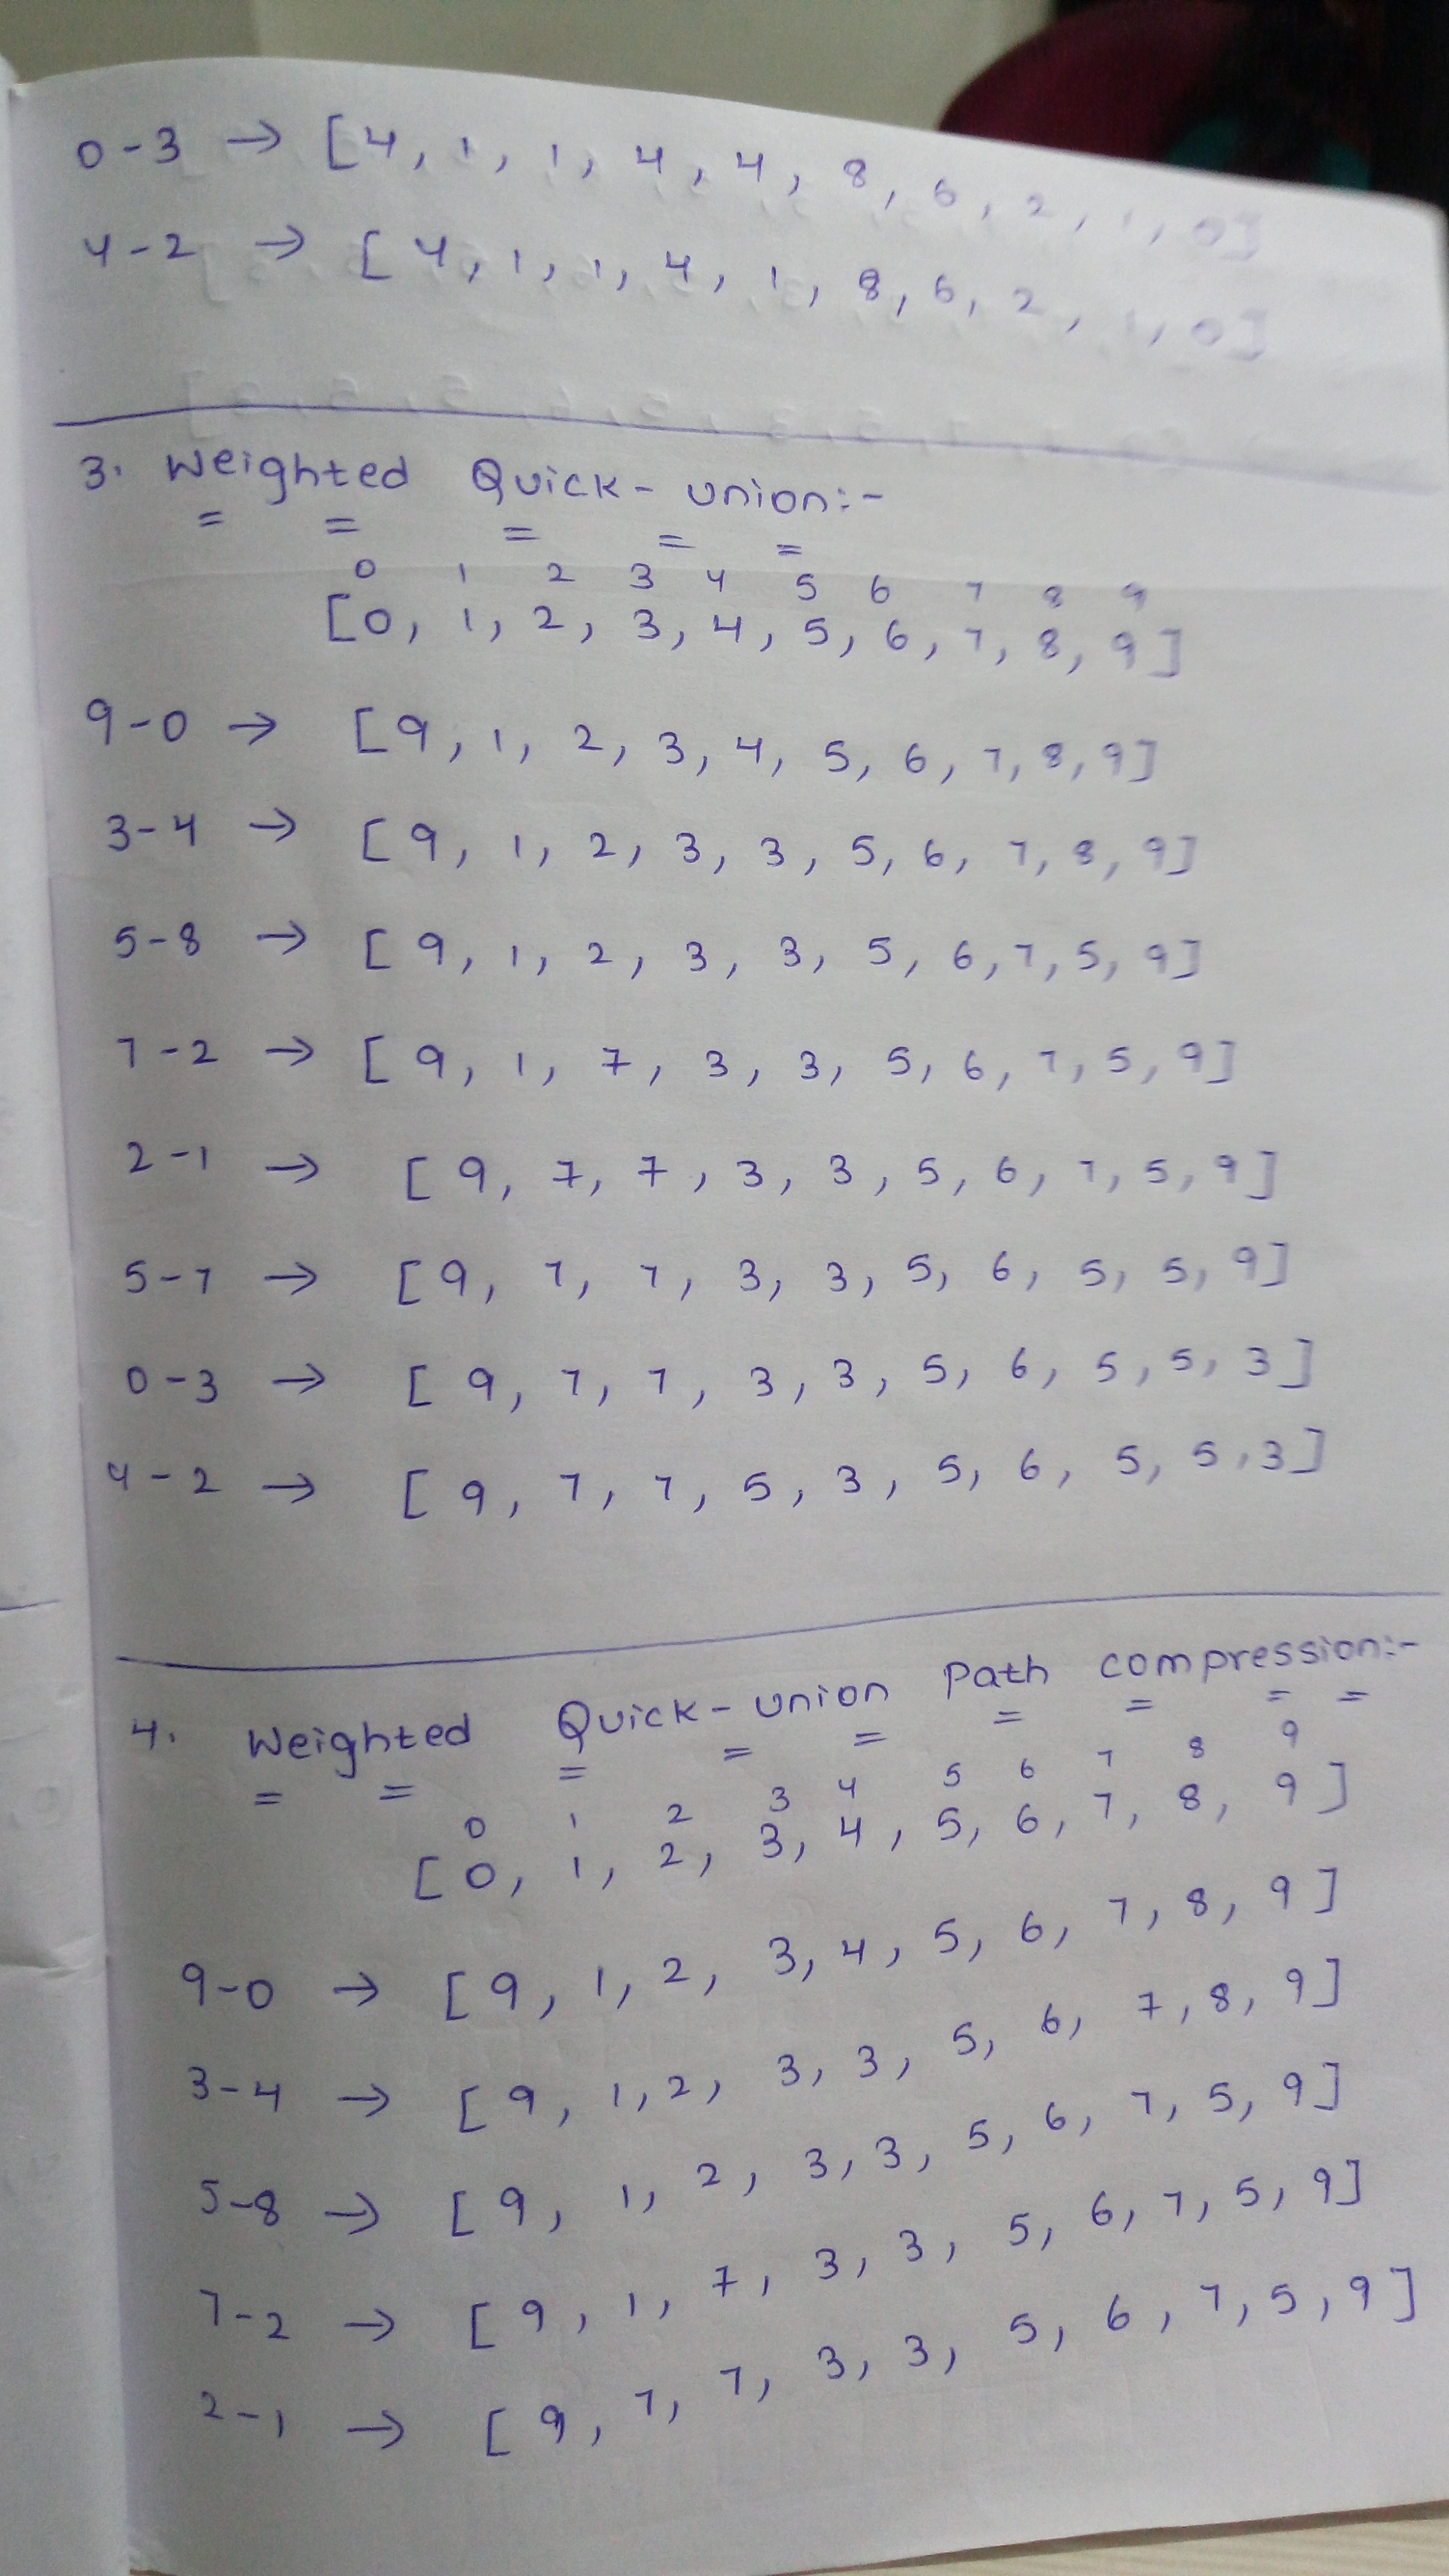 0-3 → [4, 1, 1, 4, 4, 8, 6, 2, 1, 0]
4-2 → [4, 1, 1, 4, 1, 8, 6, 2, 1, 0]
3. Weighted Quick-union:-
0 1 2 3 4 5 6 7 8 9
[0, 1, 2, 3, 4, 5, 6, 7, 8, 9]
9-0 → [9, 1, 2, 3, 4, 5, 6, 7, 8, 9]
3-4 → [9, 1, 2, 3, 3, 5, 6, 7, 8, 9]
5-8 → [9, 1, 2, 3, 3, 5, 6, 7, 5, 9]
7-2 → [9, 1, 7, 3, 3, 5, 6, 7, 5, 9]
2-1 → [9, 7, 7, 3, 3, 5, 6, 7, 5, 9]
5-7 → [9, 7, 7, 3, 3, 5, 6, 5, 5, 9]
0-3 → [9, 7, 7, 3, 3, 5, 6, 5, 5, 3]
4-2 → [9, 7, 7, 5, 3, 5, 6, 5, 5, 3]
4. Weighted Quick-union Path compression:-
0 1 2 3 4 5 6 7 8 9
[0, 1, 2, 3, 4, 5, 6, 7, 8, 9]
9-0 → [9, 1, 2, 3, 4, 5, 6, 7, 8, 9]
3-4 → [9, 1, 2, 3, 3, 5, 6, 7, 8, 9]
5-8 → [9, 1, 2, 3, 3, 5, 6, 7, 5, 9]
7-2 → [9, 1, 7, 3, 3, 5, 6, 7, 5, 9]
2-1 → [9, 7, 7, 3, 3, 5, 6, 7, 5, 9]